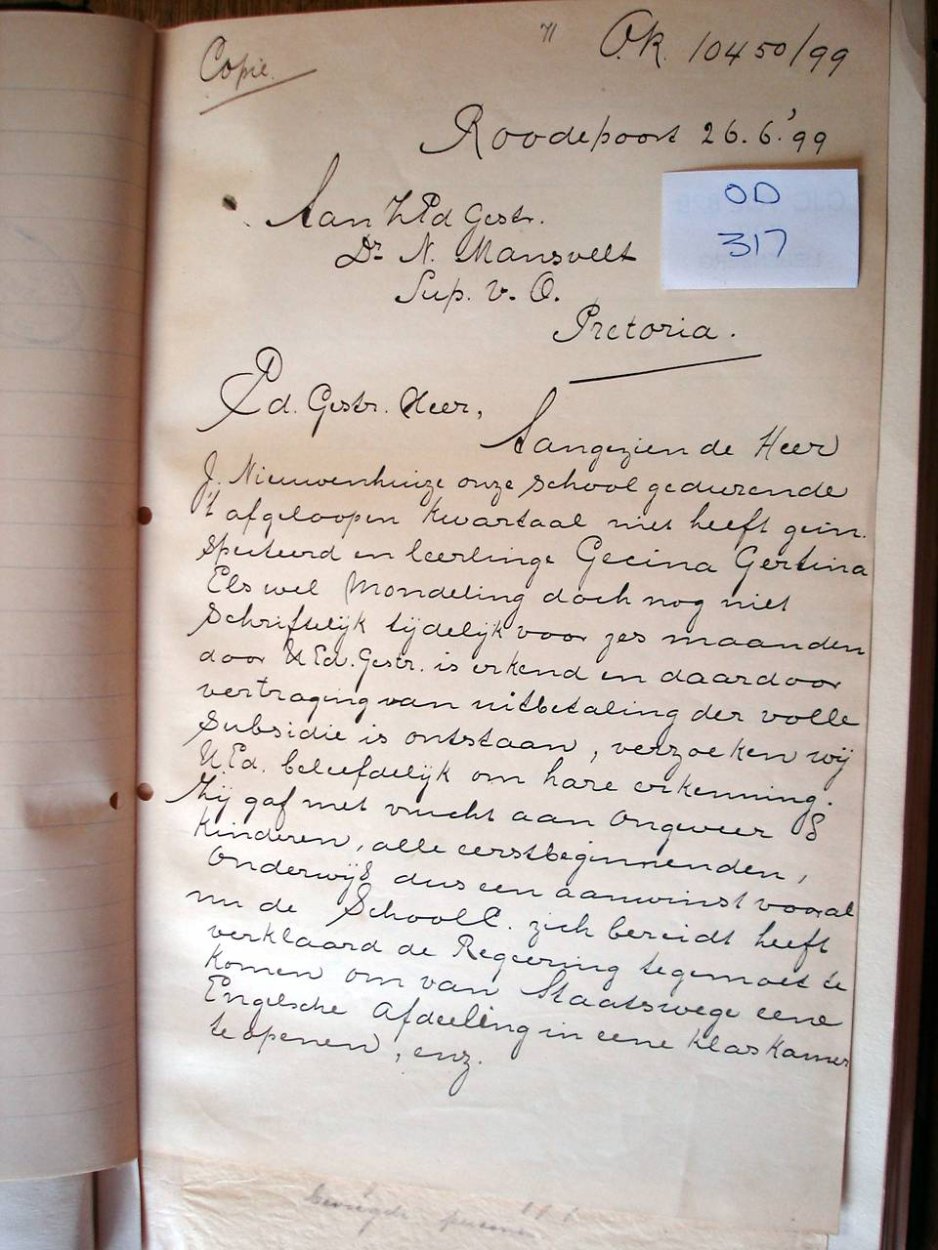 Copie.
71
O.R. 10450/99
Roodepoort 26.6.'99
OD
317
Aan ZEd Gestr.
Dr N. Mansvelt
Sup. v. O.
Pretoria.
Ed. Gestr. Heer,
Aangezien de Heer
J. Nieuwenhuize onze school gedurende
't afgeloopen kwartaal niet heeft geïn-
specteerd en leerlinge Gecina Gertina
Els wel mondeling doch nog niet
schriftelijk tijdelijk voor zes maanden
door UEd. Gestr. is erkend en daardoor
vertraging van uitbetaling der volle
subsidie is ontstaan, verzoeken wij
U.Ed. beleefdelijk om hare erkenning.
Zij gaf met vrucht aan ongeveer 8
kinderen, alle eerstbeginnenden,
onderwijs dus een aanwinst vooral
nu de SchoolC. zich bereidt heeft
verklaard de Regeering tegemoet te
komen om van Staatswege eene
Engelsche Afdeeling in eene klaskamer
te openen, enz.